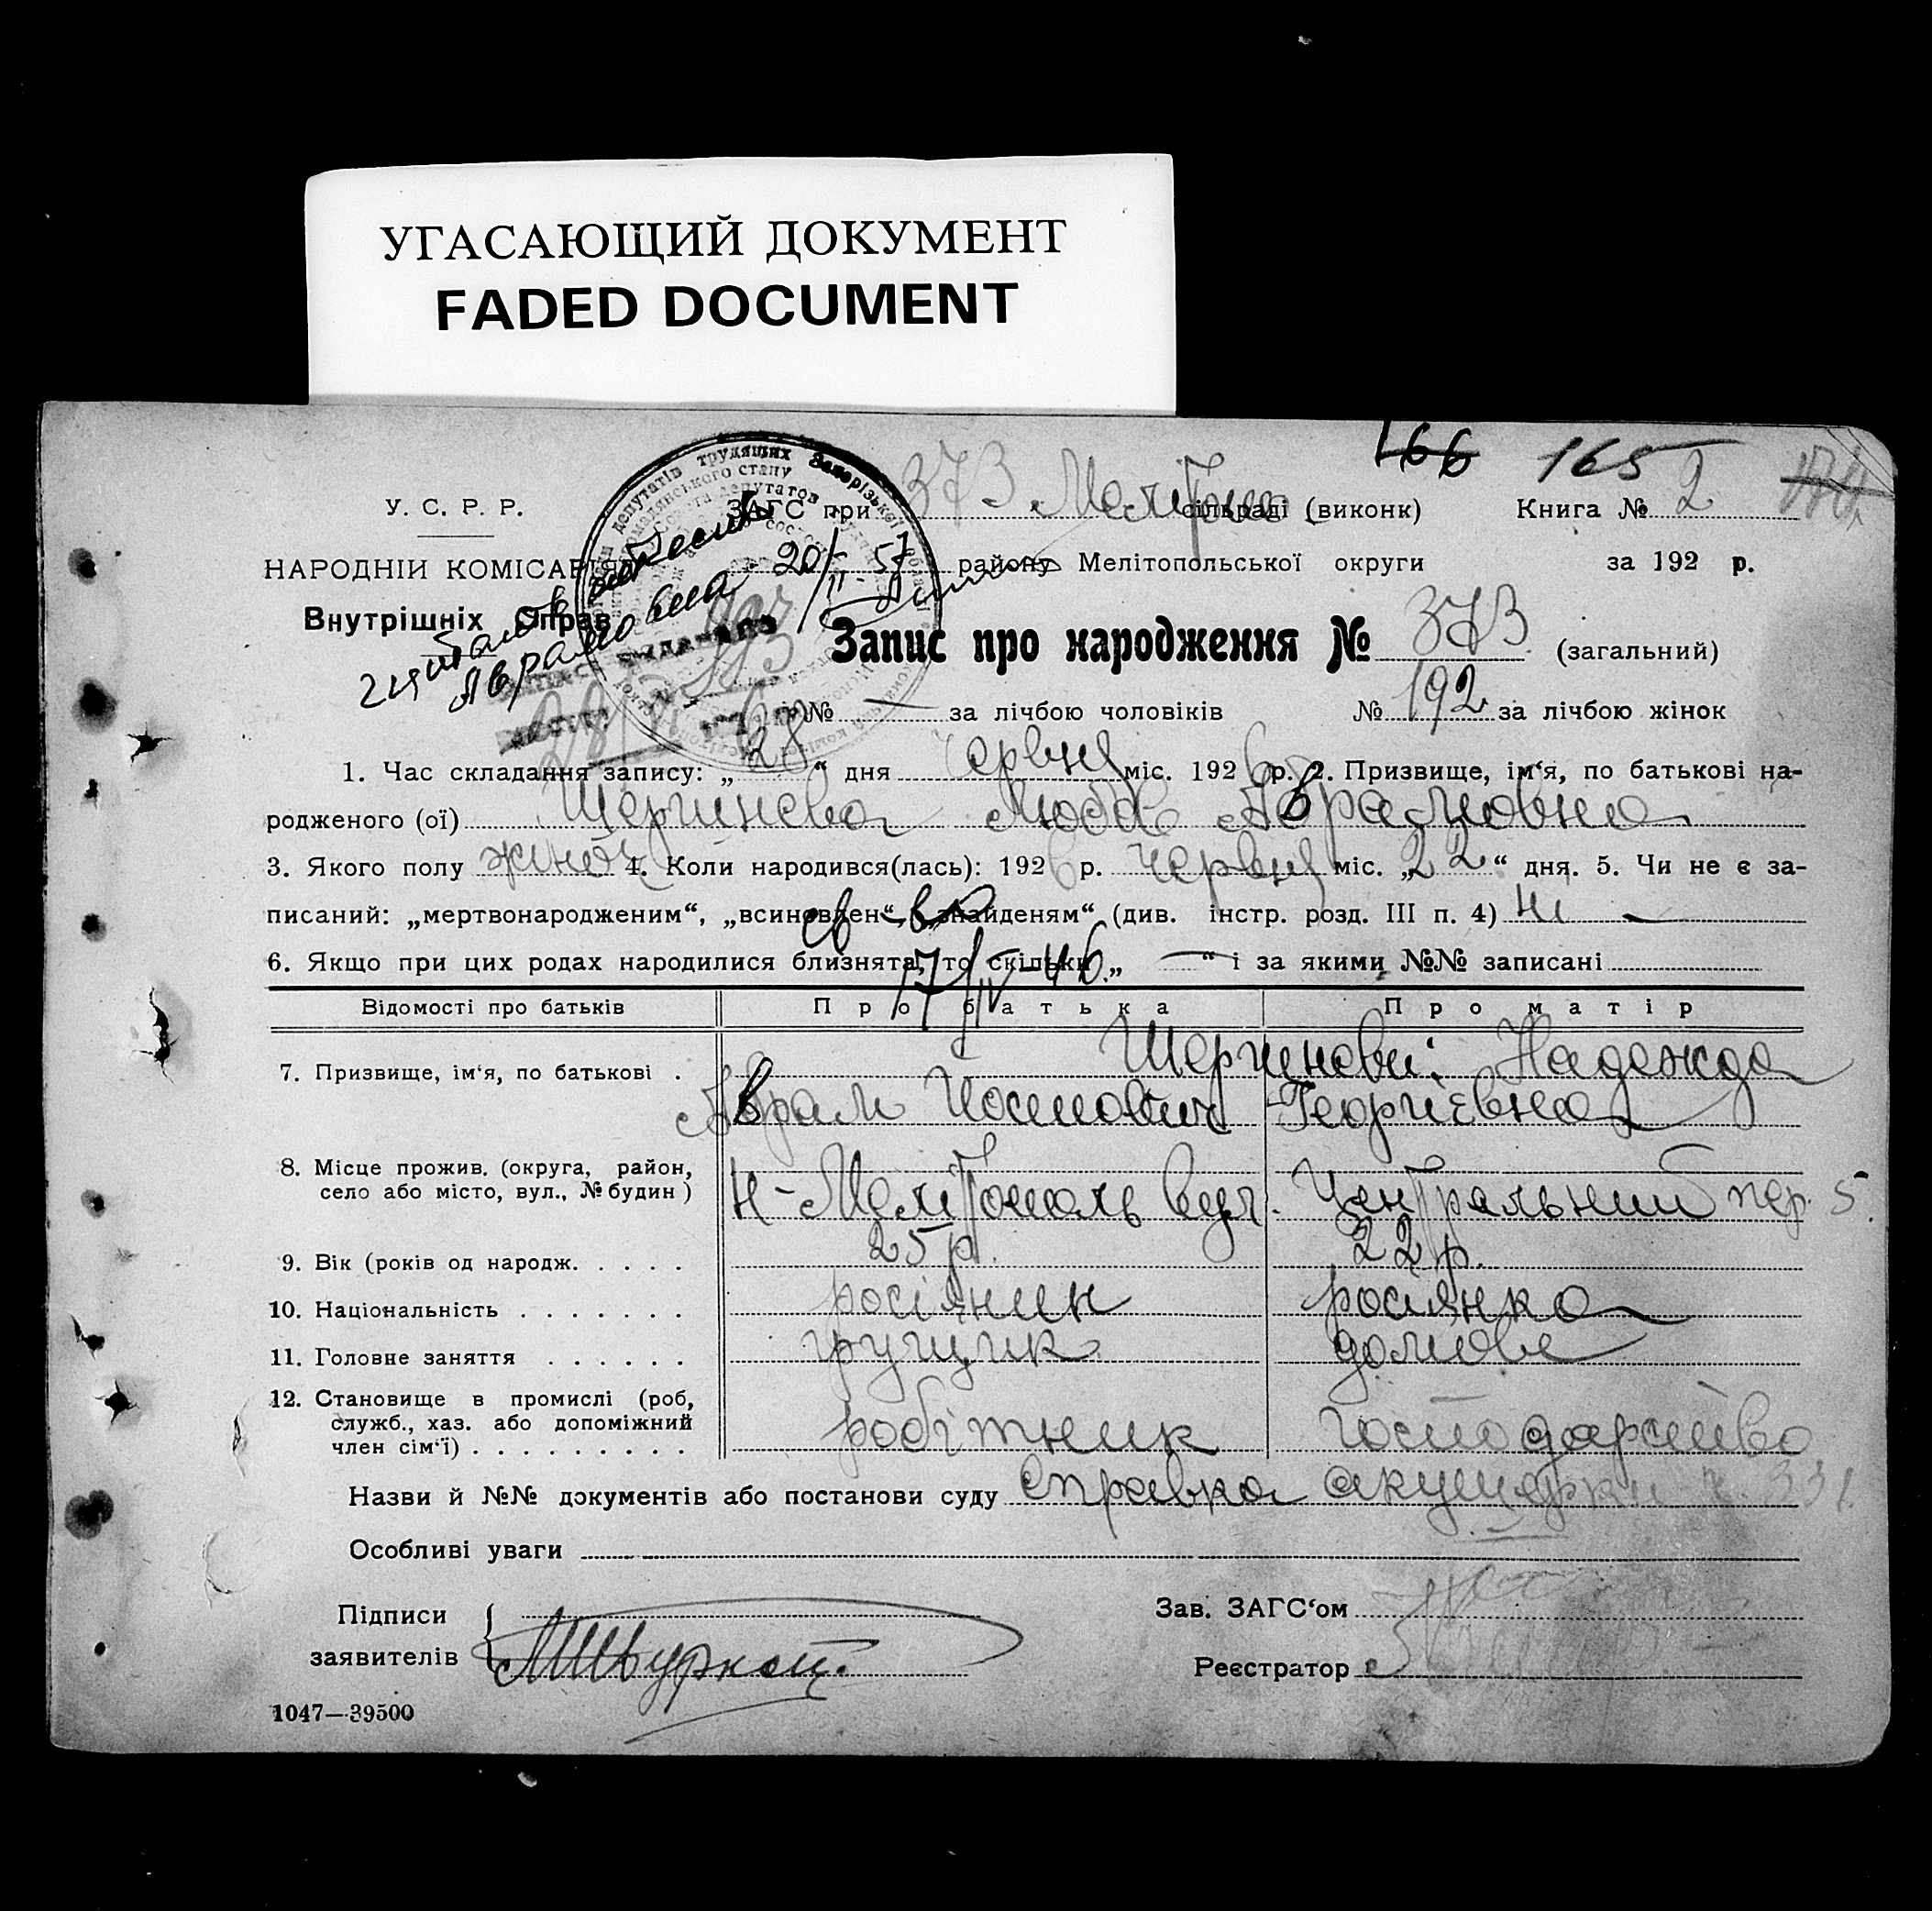 УГАСАЮЩИЙ ДОКУМЕНТ
FADED DOCUMENT
166 165
У. С. Р. Р.
НАРОДНІЙ КОМІСАРІЯТ
Внутрішніх Справ
373
ЗАГС при Меліт сільраді (виконк) Книга № 2
району Мелітопольської округи за 192 р.
20/II-57
читать отчество
Абрамовна
Запис про народження № 373 (загальний)
№ — за лічбою чоловіків № 192 за лічбою жінок
1. Час складання запису: „28“ дня червня міс. 1926 р. 2. Призвище, ім‘я, по батькові на-
родженого (ої) Любов Абрамовна
3. Якого полу жіноч 4. Коли народився(лась): 1926 р. червня міс. „22“ дня. 5. Чи не є за-
писаний: „мертвонародженим“, „всиновлен“, „знайденям“ (див. інстр. розд. III п. 4) ні —
св-во
17/IV-46.
6. Якщо при цих родах народилися близнята, то скільки „ — “ і за якими №№ записані
Відомості про батьків Про батька Про матір
7. Призвище, ім‘я, по батькові . Надежда
Абрам Йосипович Георгіевна
8. Місце прожив. (округа, район,
село або місто, вул., № будин) Н-Мелітополь вул. Центральний пер. 5.
9. Вік (років од народж. . . . . 25 р. 22 р.
10. Національність . . . . . . . росіянин росіянка
11. Головне заняття . . . . . . грущик домове
12. Становище в промислі (роб,
служб., хаз. або допоміжний
член сім‘ї) . . . . . . . . . робітник господарство
Назви й №№ документів або постанови суду справка акушерки 331.
Особливі уваги
Підписи
заявителів
Зав. ЗАГС‘ом
Реєстратор
1047—39500